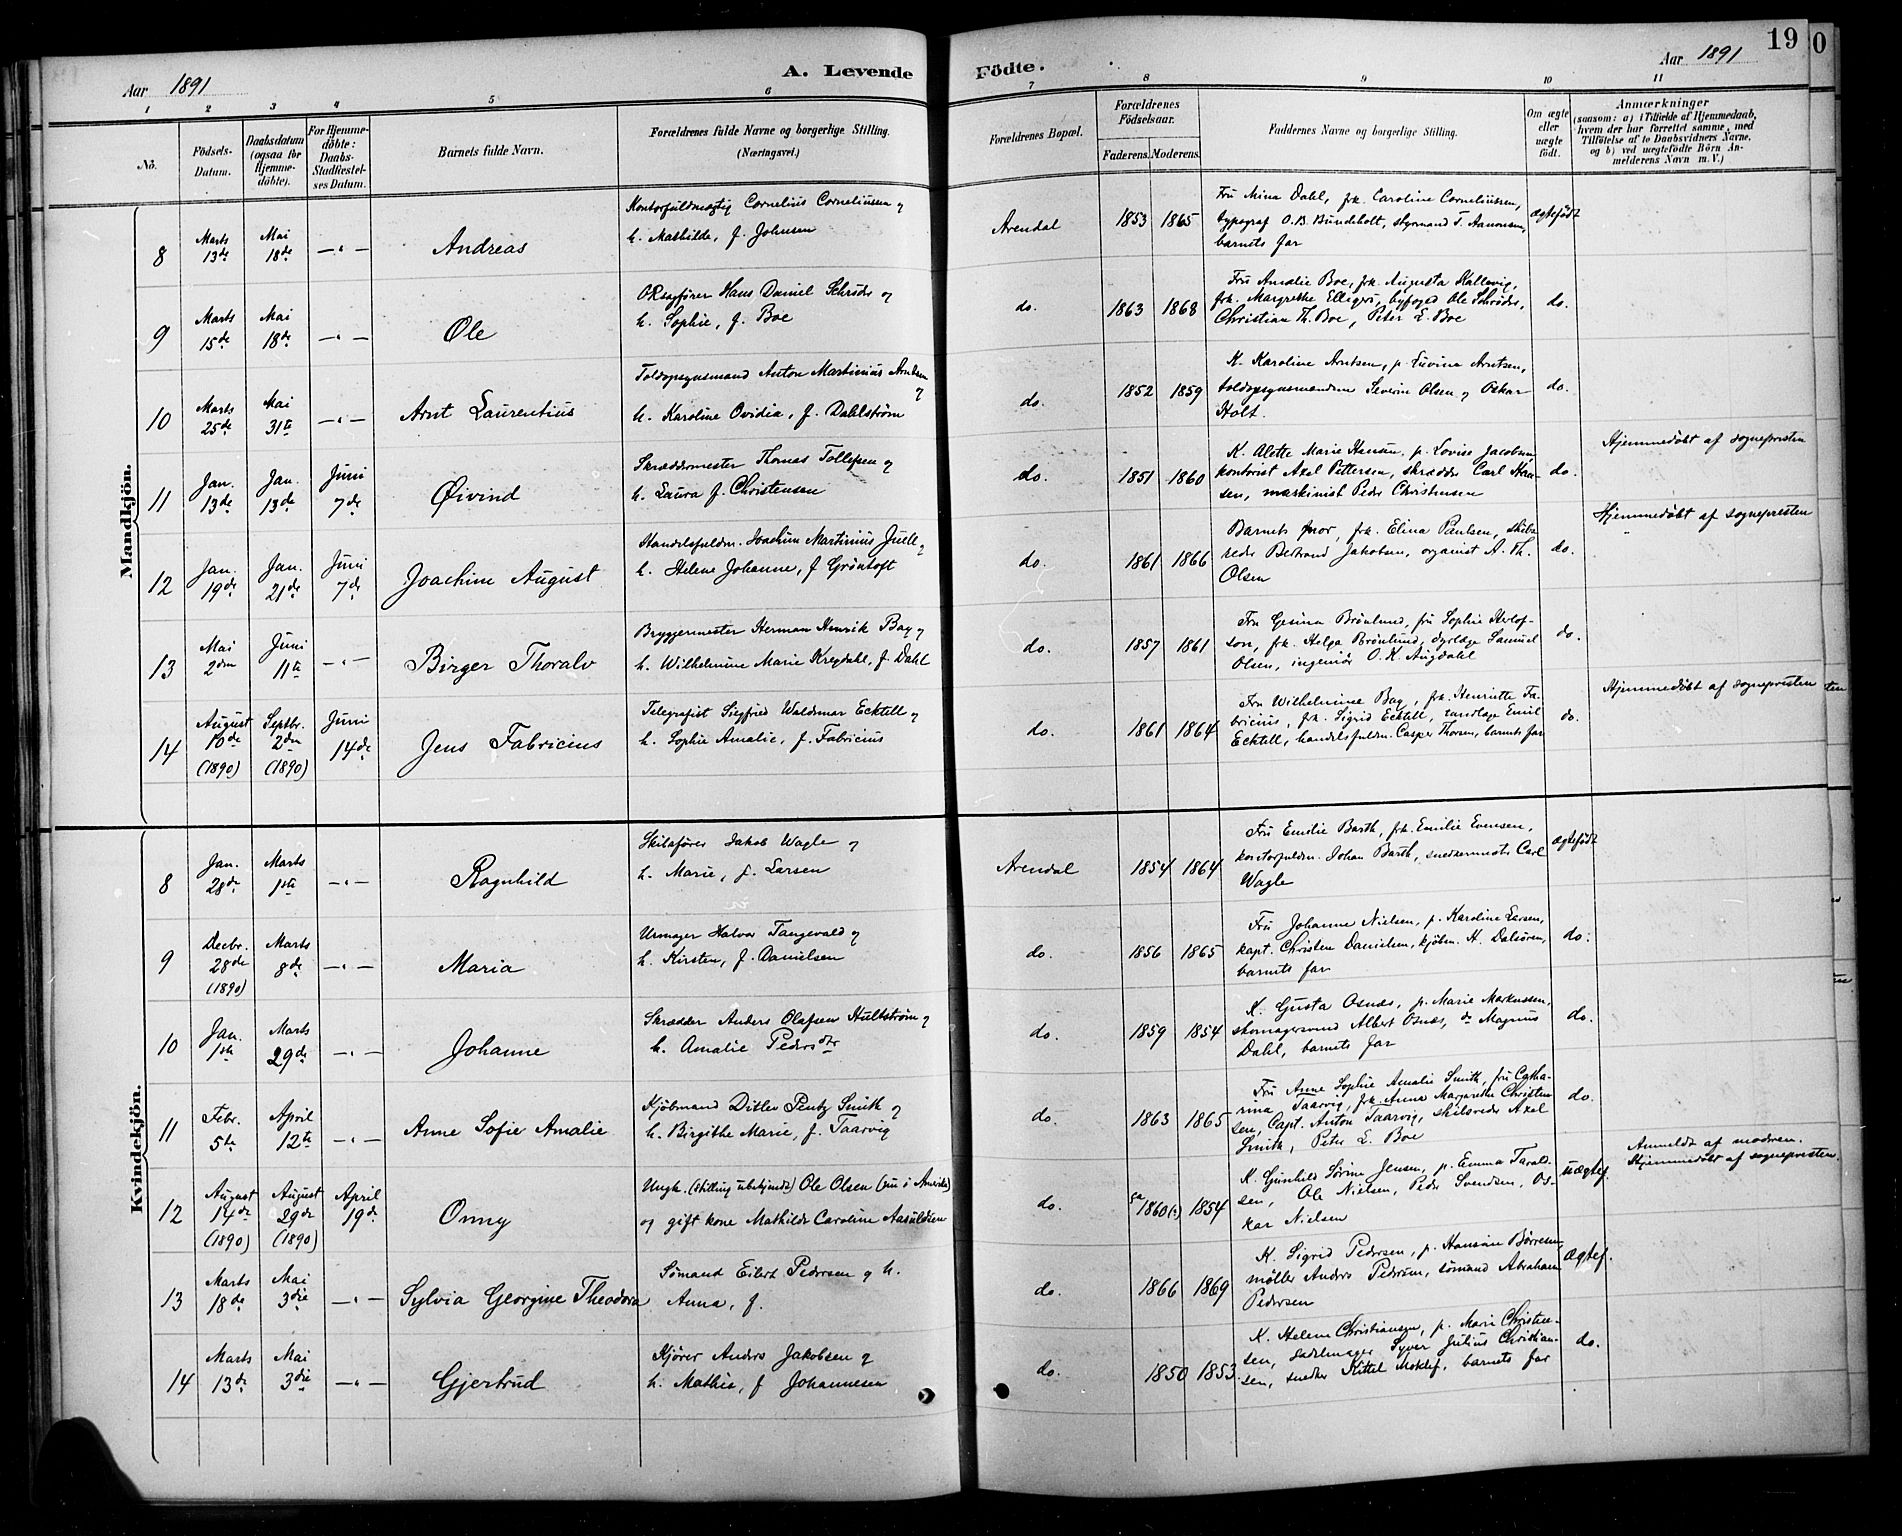 19
0
Aar 1891
A. Levende
Födte.
Aar 1891
1 2 3 4 5 6 7 8 9 10 11
No.
Födsels-
Datum.
Daabsdatum
(ogsaa for
Hjemme-
döbte).
For Hjemme-
döbte:
Daabs-
Stadfæstel-
ses Datum.
Barnets fulde Navn.
Forældrenes fulde Navne og borgerlige Stilling.
(Næringsvei.)
Forældrenes Bopæl.
Forældrenes
Födselsaar.
Faderens. Moderens.
Faddernes Navne og borgerlige Stilling.
Om ægte
eller
uægte
födt.
Anmærkninger
(saasom: a) i Tilfælde af Hjemmedaab,
hvem der har forrettet samme, med
Tilföielse af to Daabsvidners Navne,
og b) ved uægtefödte Börn An-
melderens Navn m. V.)
Mandkjön.
8
Marts
13de
Mai
18de
—"—
Andreas
Kontorfuldmægtig Cornelius Corneliussen og
h. Mathilde, f. Johnsen
Arendal
1853 1865
Fru Mina Dahl, frk. Caroline Corneliussen,
typograf O. B. Bundeholt, styrmand T. Aanonsen,
barnets far
ægtefödt
9
Marts
15de
Mai
18de
—"—
Ole
ORsagfører Hans Daniel Schrøder og
h. Sophie, f. Boe
do.
1863 1868
Fru Amalie Boe, frk. Augusta Kallevig,
frk. Margrethe Elligers, byfoged Ole Schrøder,
Christian Th. Boe, Peter E. Boe
do.
10
Marts
25de
Mai
31te
—"—
Arnt Laurentius
Toldopsynsmand Anton Martinius Arntsen
og
h. Karoline Ovidia, f. Dahlstrøm
do.
1852 1859
K. Karoline Arntsen, p. Luvina Arntsen,
toldopsynsmændene Severin Olsen og Oskar
Holt.
do.
11
Jan.
13de
Jan.
13de
Juni
7de
Øivind
Skræddermester Thomas Tollefsen og
h. Laura f. Christensen
do.
1851 1860
K. Alette Marie Hansen, p. Lovise Jacobsen,
kontorist Axel Pettersen, skrædder Carl Han-
sen, maskinist Peder Christensen
do.
Hjemmedøbt af sognepresten
12
Jan.
19de
Jan.
21de
Juni
7de
Joachim August
Handelsfuldm. Joachim Martinius Juell og
h. Helene Johanne, f Grøntoft
do.
1861 1866
Barnets mor, frk. Elina Paulsen, skibs-
reder Bertrand Jakobsen, organist A. Th.
Olsen
do.
Hjemmedøbt af sognepresten
13
Mai
2den
Juni
11te
—"—
Birger Thoralv
Bryggermester Herman Henrik Bay og
h. Wilhelmine Marie Kregdahl, f. Dahl
do.
1857 1861
Fru Gesina Brönlund, fru Sophie Herlof-
son, frk. Helga Brönlund, dyrlæge Samuel
Olsen, ingeniør O. K. Augdahl
do.
14
August
10de
(1890)
Septbr.
2den
(1890)
Juni
14de
Jens Fabricius
Telegrafist Siegfred Waldemar Ecktell og
h. Sophie Amalie, f. Fabricius
do.
1861 1864
Fru Wilhelmine Bay, frk. Henriette Fa-
bricius, frk. Sigrid Ecktell, tandlæge Emil
Ecktell, handelsfuldm. Casper Thorsen, barnets far
do.
Hjemmedøbt af sognepresten
Kvindekjön.
8
Jan.
28de
Marts
1ste
—"—
Ragnhild
Skibsfører Jakob Wagle og
h. Marie, f. Larsen
Arendal
1854 1864
Fru Emilie Barth, frk. Emilie Evensen,
kontorfuldm. Johan Barth, snedkermester Carl
Wagle
ægtefödt
9
Decbr.
28de
(1890)
Marts
8de
—"—
Maria
Urmager Halvor Tangevald og
h. Kirsten, f. Danielsen
do.
1856 1865
Fru Johanne Nielsen, p. Karoline Larsen,
kapt. Christen Danielsen, kjøbm. H. Dalsøren,
barnets far
do.
10
Jan.
1ste
Marts
29de
—"—
Johanne
Skrædder Anders Olafsen Hultstrøm og
h. Amalie Pedersdtr
do.
1859 1854
K. Gusta Osnæs, p. Marie Markussen,
skomagersvend Albert Osnæs, do Magnus
Dahl, barnets far
do.
11
Febr.
5te
April
12te
—"—
Anne Sofie Amalie
Kjöbmand Ditlev Pentz Smith og
h. Birgithe Marie, f. Taarvig
do.
1863 1865
Fru Anne Sophie Amalie Smith, fru Catha-
rina Taarvig, frk. Anna Margrethe Christen
sen, Capt. Anton Taarvig, skibsreder Axel
Smith, Peter E. Boe
do.
12
August
14de
(1890)
August
29de
(1890)
April
19de
Onny
Ungk. (stilling ubekjendt) Ole Olsen (nu i Amerika)
og gift kone Mathilde Caroline Aasuldsen
do.
ca 1860(?) 1854
K. Gunhild Sørine Jensen, p. Emma Tarald-
sen, Ole Nielsen, Peder Svendsen, Os-
kar Nielsen
uægtef.
Anmeldt af moderen.
Hjemmedøbt af sognepresten.
13
Marts
18de
Mai
3die
—"—
Sylvia Georgine Theodora
Sømand Eilert Pedersen og h.
Anna, f.
do.
1866 1869
K. Sigrid Pedersen, p. Hansine Børresen,
møller Anders Pedersen, sømand Abraham
Pedersen
Ægtef.
14
Marts
13de
Mai
3die
—"—
Gjertrud
Kjører Anders Jakobsen og
h. Mathie, f Johannesen
do.
1850 1853.
K. Helene Christiansen, p. Marie Christen-
sen, sadelmager Syver Julius Christian-
sen, snedker Kittel Moklef, barnets far
do.